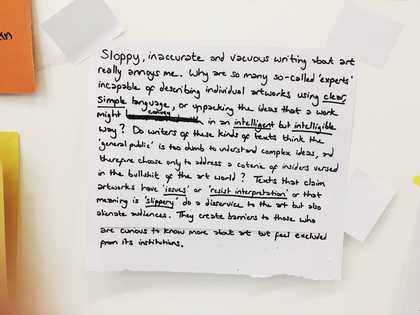 in
Sloppy, inaccurate and vacuous writing about art
really annoys me. Why are so many so-called 'experts'
incapable of describing individual artworks using clear,
simple language, or unpacking the ideas that a work
might convey in an intelligent but intelligible
way? Do writers of these kinds of texts think the
'general public' is too dumb to understand complex ideas, and
therefore choose only to address a coterie of insiders versed
in the bullshit of the art world? Texts that claim
artworks have 'issues' or 'resist interpretation' or that
meaning is 'slippery' do a disservice to the art but also
alienate audiences. They create barriers to those who
are curious to know more about art but feel excluded
from its institutions.